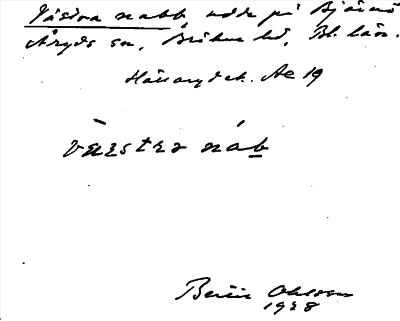 Västra nabb udde på Bjärnö
Åryds sn, Bräkne hd, Bl. län.
Hällaryd ek. Ae 19
væstra náb
Berit Ohlsson
1928